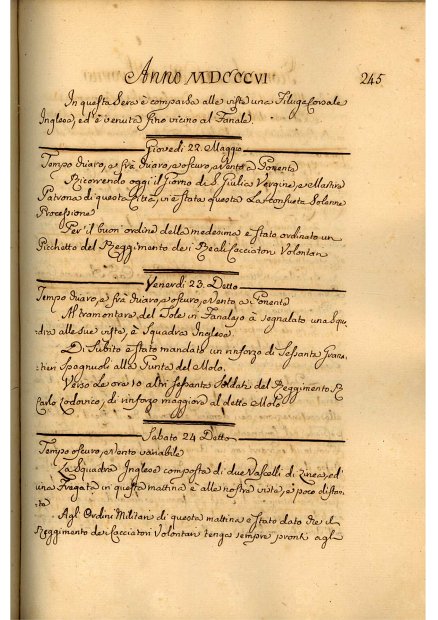 Anno MDCCCVI 245
In questa Sera è comparsa alle viste una Filuga Corsale
Inglese, ed è venuta fino vicino al Fanale.
Giovedì 22. Maggio
Tempo chiaro, e frà chiaro, e oscuro, e vento a Ponente
Ricorrendo oggi il Giorno di S. Giulia Vergine, e Martire
Patrona di questa Città, vi è stata questa La consueta Solenne
Processione
Per il buon ordine della medesima è stato ordinato un
Picchetto del Reggimento dei Reali Cacciatori Volontari
Venerdì 23. Detto
Tempo chiaro, e frà chiaro, e oscuro, e Vento a Ponente
Al tramontare del Sole in Fanalajo à segnalato una Squa,
dra alle sue viste, è Squadra Inglese.
Di Subito è stato mandato un rinforzo di Sessanta Grana,
tieri Spagnuoli alla Punta del Molo.
Verso le ore 10 altri sessanta Soldati del Reggimento R.
Carlo Lodovico, di rinforzo maggiore al detto Molo
Sabato 24 Detto
Tempo oscuro, e Vento variabile
La Squadra Inglese composta di due Vascelli di Linea, ed
una Fregata in questa mattina è alle nostre viste, e poco distan,
te
Agl' Ordini Militari di questa mattina è stato dato che il
Reggimento dei Cacciatori Volontari tenga sempre pronti agl'